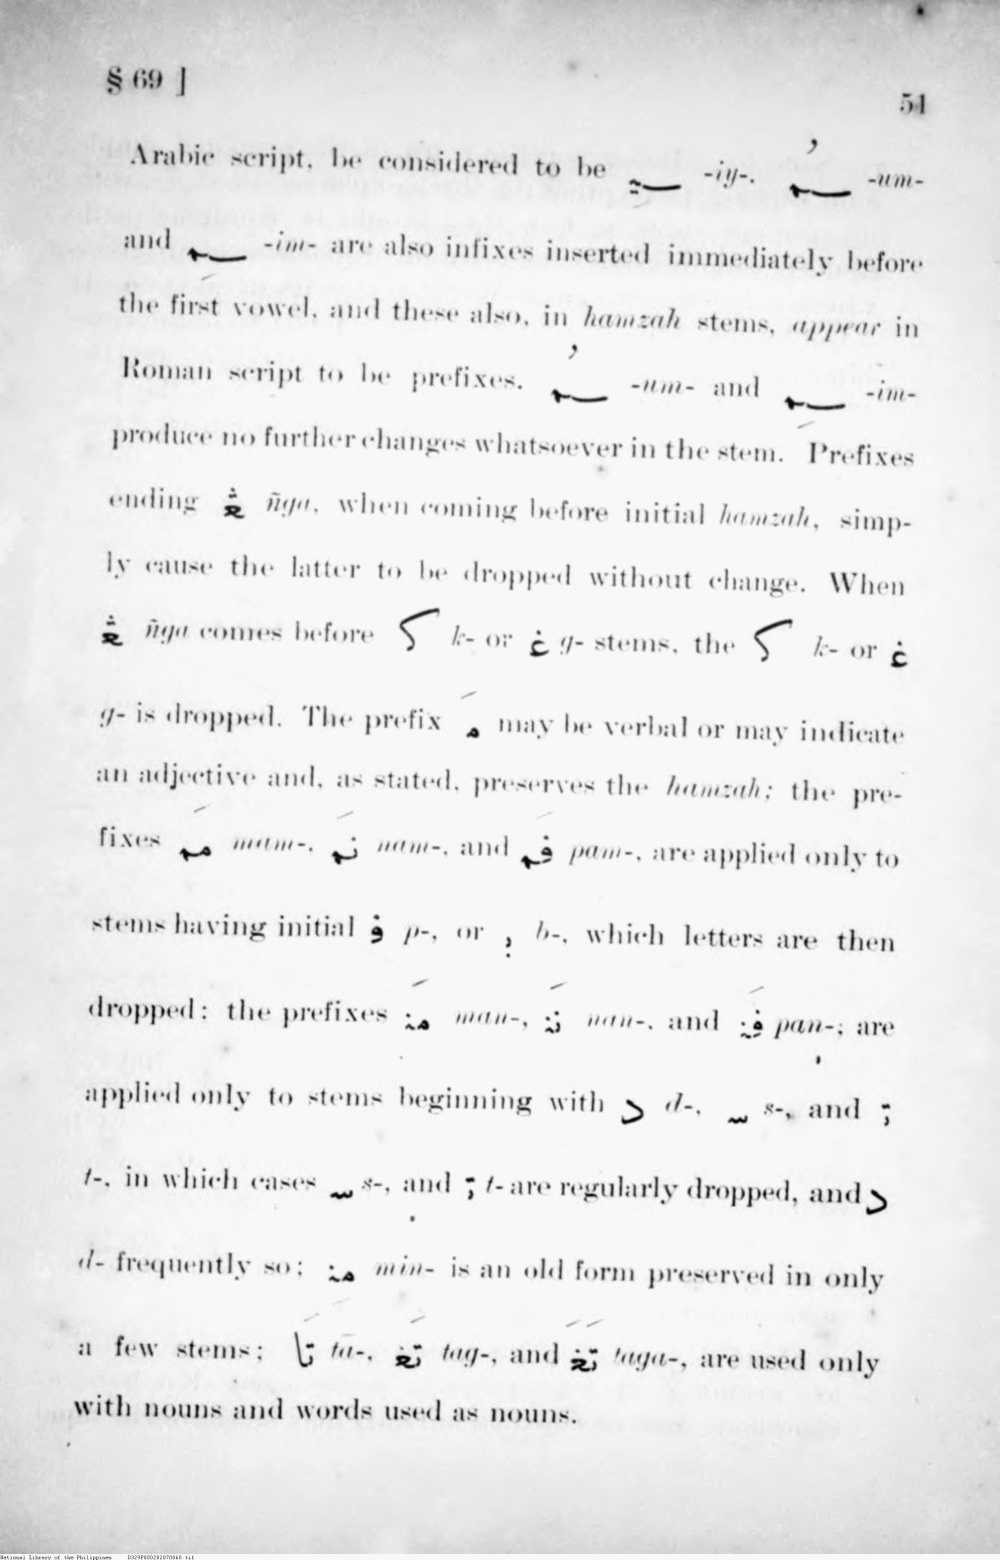 § 69 ]
51
Arabic script, be considered to be ـيـ -iy-. ـُمـ -um-
and ـمِـ -im- are also infixes inserted immediately before
the first vowel, and these also, in hamzah stems, appear in
Roman script to be prefixes. ـُمـ -um- and ـمِـ -im-
produce no further changes whatsoever in the stem. Prefixes
ending ڠ ñga, when coming before initial hamzah, simp-
ly cause the latter to be dropped without change. When
ڠ ñga comes before ک k- or غ g- stems, the ک k- or غ
g- is dropped. The prefix مَـ may be verbal or may indicate
an adjective and, as stated, preserves the hamzah; the pre-
fixes مَمـ mam-, نَمـ nam-, and فَمـ pam-, are applied only to
stems having initial ف p-, or ب b-, which letters are then
dropped: the prefixes مَنـ man-, نَنـ nan-, and فَنـ pan-; are
applied only to stems beginning with د d-, سـ s-, and تـ
t-, in which cases سـ s-, and تـ t- are regularly dropped, and د
d- frequently so; مِنـ min- is an old form preserved in only
a few stems; تَا tā-, تَغـ tag-, and تَغَـ taga-, are used only
with nouns and words used as nouns.
National Library of the Philippines